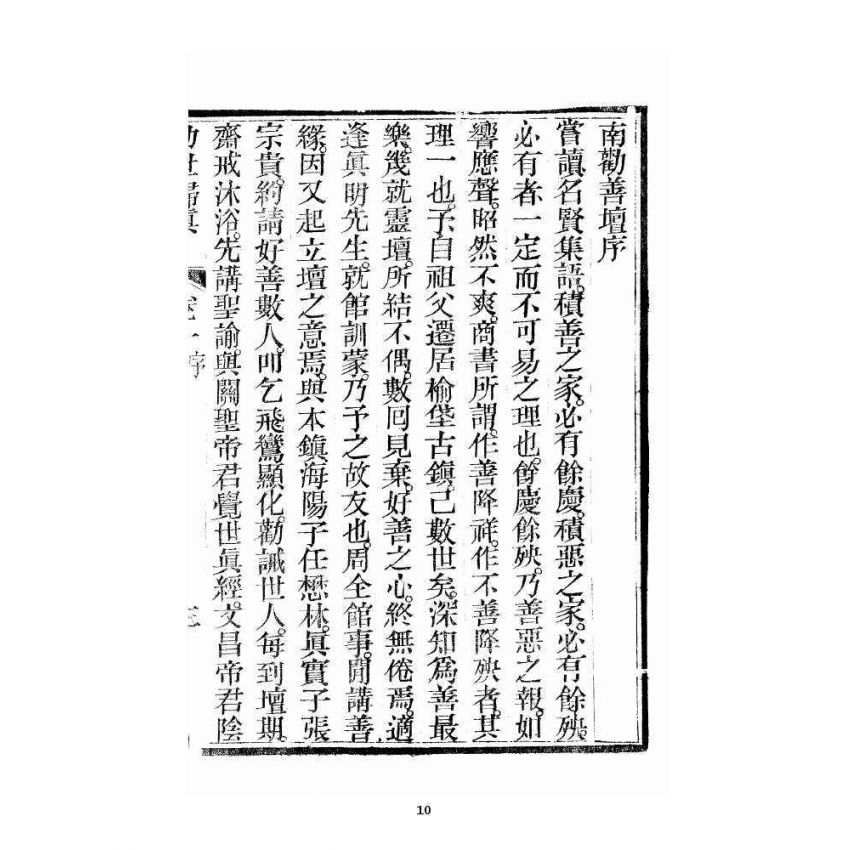 南勸善壇序
嘗讀名賢集語。積善之家。必有餘慶。積惡之家。必有餘殃。
必有者一定而不可易之理也。餘慶餘殃。乃善惡之報。如
響應聲。昭然不爽。商書所謂。作善降祥。作不善降殃者。其
理一也。予自祖父遷居榆垡古鎮。已數世矣。深知為善最
樂。幾就靈壇。所結不偶。數回見棄。好善之心。終無倦焉。適
逢眞明先生。就館訓蒙。乃予之故友也。周全館事。閒講善
緣。因又起立壇之意焉。與本鎮海陽子任懋林。眞實子張
宗貴。約請好善數人。叩乞飛鸞顯化。勸誡世人。每到壇期。
齋戒沐浴。先講聖諭。與關聖帝君覺世眞經。文昌帝君陰
勸世歸眞 卷一序 三
10